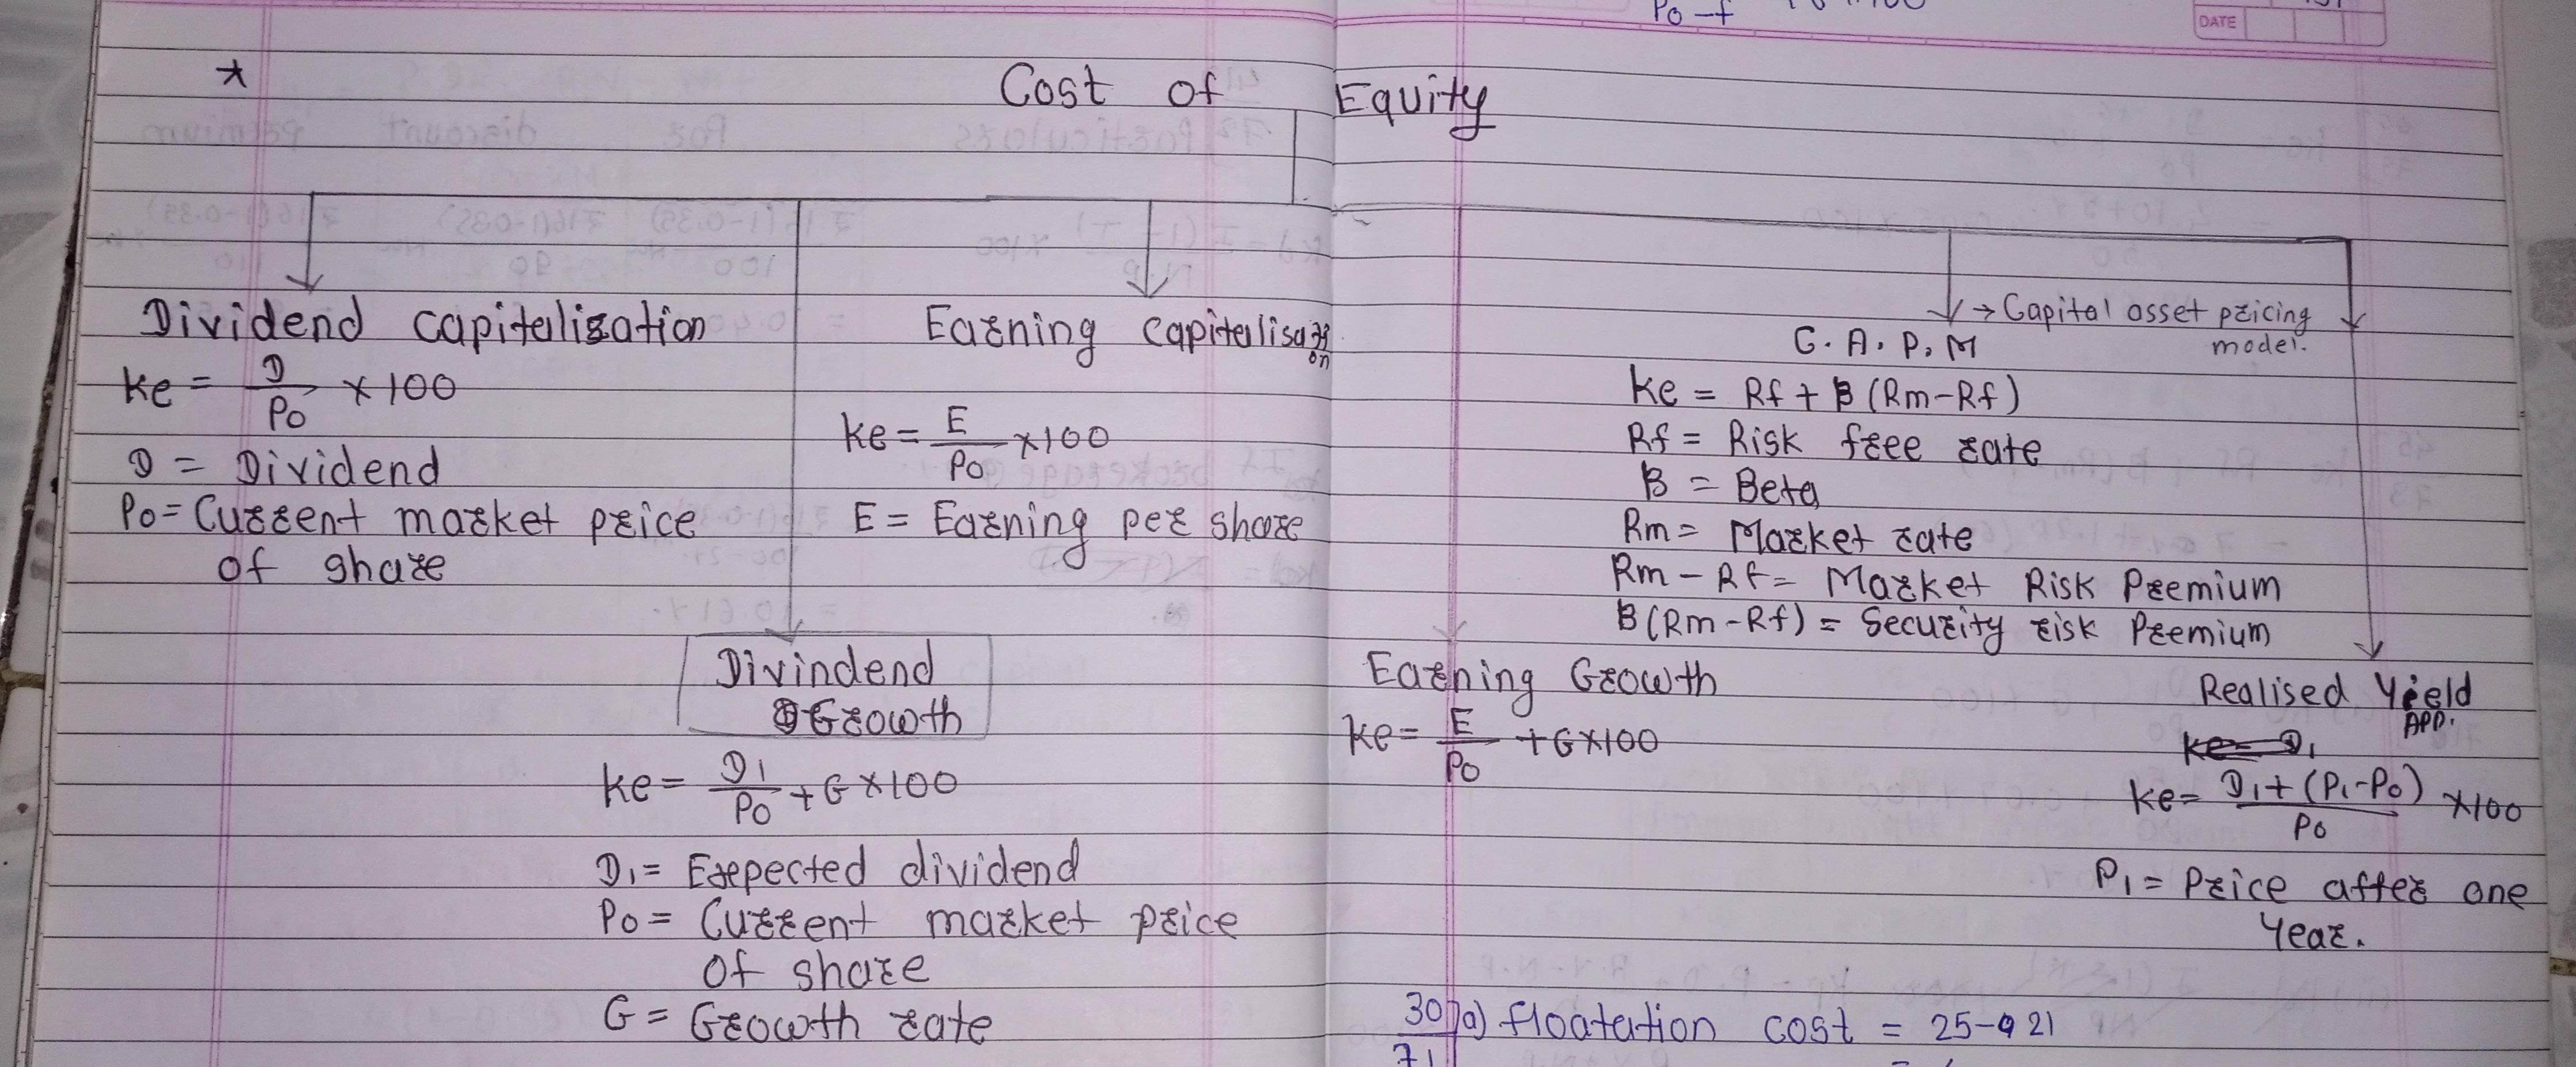 Po-f
DATE
* Cost of Equity
Dividend capitalisation
Ke = D/Po × 100
D = Dividend
Po = Current market price
of share
Earning Capitalisati
on
Ke = E/Po × 100
E = Earning per share
→ Capital asset pricing
model.
C. A. P. M
Ke = Rf + B (Rm-Rf)
Rf = Risk free rate
B = Beta
Rm = Market rate
Rm - Rf = Market Risk Premium
B(Rm-Rf) = Security risk Premium
Divindend
Growth
Ke = D1/Po + G×100
D1 = Expected dividend
Po = Current market price
of share
G = Growth rate
Earning Growth
Ke = E/Po + G×100
Realised Yield
APP.
Ke = D1
Ke = D1 + (P1-Po)/Po ×100
P1 = Price after one
Year.
30/71 a) floatation cost = 25-21